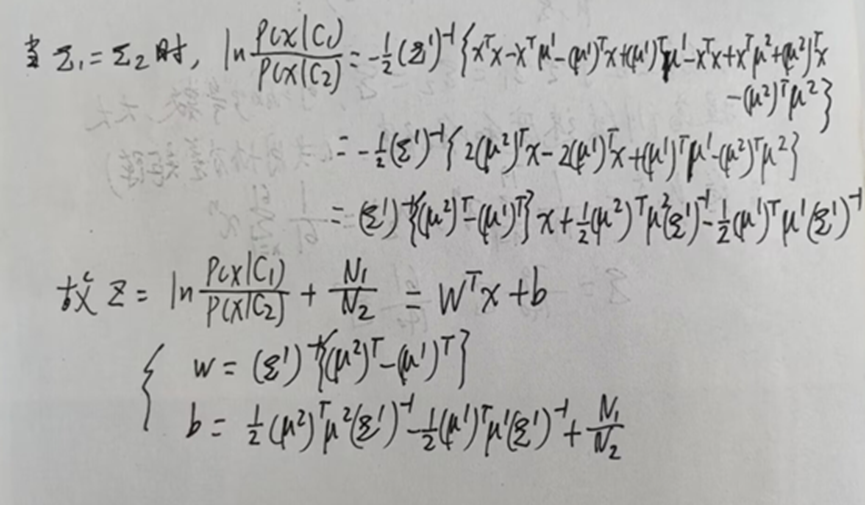 当 Σ₁=Σ₂ 时, ln P(x|C₁)/P(x|C₂) = -½(Σ¹)⁻¹{xᵀx-xᵀμ¹-(μ¹)ᵀx+(μ¹)ᵀμ¹-xᵀx+xᵀμ²+(μ²)ᵀx
-(μ²)ᵀμ²}
= -½(Σ¹)⁻¹{2(μ²)ᵀx-2(μ¹)ᵀx+(μ¹)ᵀμ¹-(μ²)ᵀμ²}
= (Σ¹)⁻¹{(μ²)ᵀ-(μ¹)ᵀ}x+½(μ²)ᵀμ²(Σ¹)⁻¹-½(μ¹)ᵀμ¹(Σ¹)⁻¹
故 z = ln P(x|C₁)/P(x|C₂) + N₁/N₂ = Wᵀx+b
{ w = (Σ¹)⁻¹{(μ²)ᵀ-(μ¹)ᵀ}
b = ½(μ²)ᵀμ²(Σ¹)⁻¹-½(μ¹)ᵀμ¹(Σ¹)⁻¹+N₁/N₂